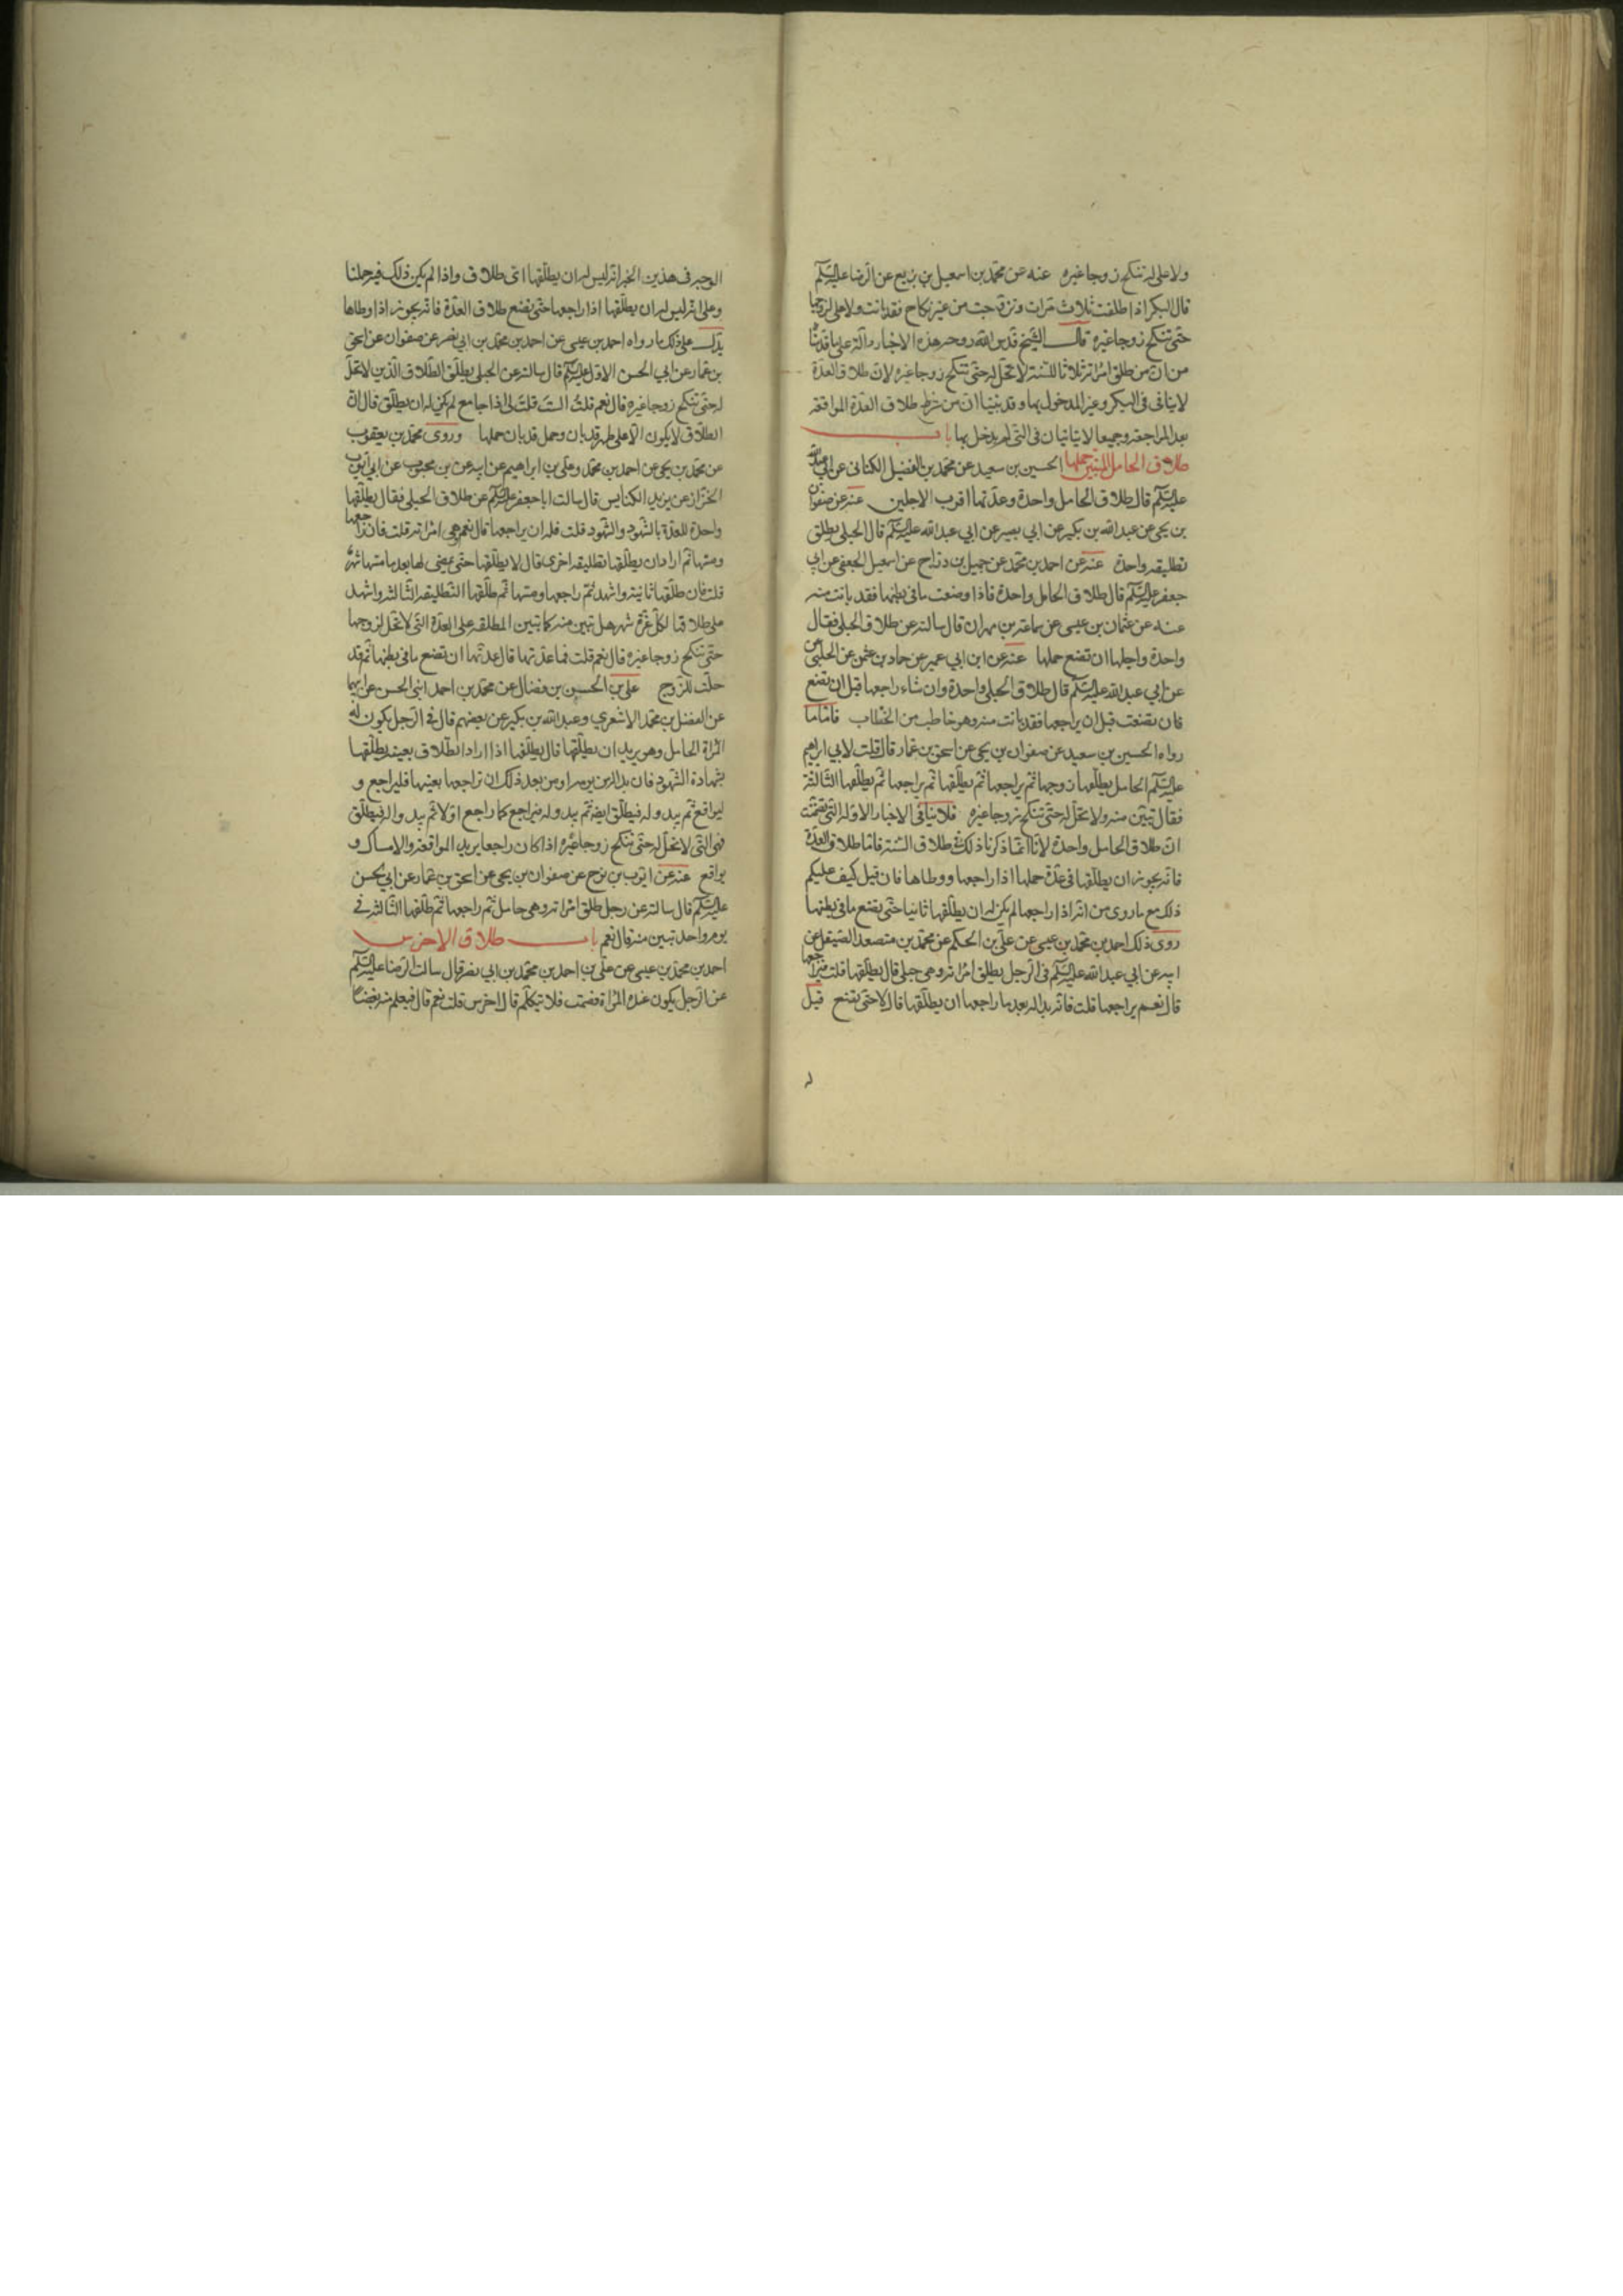 ولا على له تنكح زوجا غيره عنه عن محمد بن اسمعيل بن بزيع عن الرضا عليه السلم
قال البكر اذا طلقت ثلاث مرات وتزوجت من غير نكاح فقد بانت ولا تحل لزوجها
حتى تنكح زوجا غيره قال الشيخ قدس الله روحه هذه الاخبار دالة على ما قدمنا
من ان من طلق امراته ثلاثا للسنة لا تحل له حتى تنكح زوجا غيره لان طلاق العدة
لا يتاتى في البكر وغير المدخول بها وقد بينا ان من شرط طلاق العدة المواقعة
بعد المراجعة وجميعا لا يتاتيان في التي لم يدخل بها باب
طلاق الحامل المبين حملها الحسين بن سعيد عن محمد بن الفضيل الكناني عن ابي عبدالله
عليه السلم قال طلاق الحامل واحدة وعدتها اقرب الاجلين عنه عن صفوان
بن يحيى عن عبدالله بن بكير عن ابي بصير عن ابي عبدالله عليه السلم قال الحبلى تطلق
تطليقة واحدة عنه عن احمد بن محمد عن جميل بن دراج عن اسمعيل الجعفي عن ابي
جعفر عليه السلم قال طلاق الحامل واحدة فاذا وضعت ما في بطنها فقد بانت منه
عنه عن عثمان بن عيسى عن سماعة بن مهران قال سالته عن طلاق الحبلى فقال
واحدة واجلها ان تضع حملها عنه عن ابن ابي عمير عن حماد بن عثمن عن الحلبي
عن ابي عبدالله عليه السلم قال طلاق الحبلى واحدة وان شاء راجعها قبل ان تضع
فان تضعت قبل ان يراجعها فقد بانت منه وهو خاطب من الخطاب فاما ما
رواه الحسين بن سعيد عن صفوان بن يحيى عن اسحق بن عمار قال قلت لابي ابراهيم
عليه السلم الحامل يطلقها زوجها ثم يراجعها ثم يطلقها ثم يراجعها ثم يطلقها الثالثة
فقال تبين منه ولا تحل له حتى تنكح زوجا غيره فلا ينافي الاخبار الاولة التي تضمنت
ان طلاق الحامل واحدة لانا انما ذكرنا ذلك في طلاق السنة فاما طلاق العدة
فانه يجوز ان يطلقها في عدة حملها اذا راجعها ووطاها فان قيل كيف عليكم
ذلك مع ما روى من انه اذا راجعها لم يكن له ان يطلقها ثانيا حتى تضع ما في بطنها
روى ذلك احمد بن محمد بن عيسى عن علي بن الحكم عن محمد بن منصور الصيقل عن
ابيه عن ابي عبدالله عليه السلم في الرجل يطلق امراته وهي حبلى قال يطلقها قلت فيراجعها
قال نعم يراجعها قلت فانه بدا له بعد ما راجعها ان يطلقها قال لا حتى تضع قيل
له
الوجه في هذين الخبر انه ليس له ان يطلقها اتى طلاق واذا لم يكن ذلك فيه حملنا
وعلى انه ليس له ان يطلقها اذا راجعها حتى تضع طلاق العدة فانه يجوز اذا وطاها
يدل على ذلك ما رواه احمد بن عيسى عن احمد بن محمد بن ابي نصر عن صفوان عن اسحق
بن عمار عن ابي الحسن الاول عليه السلم قال سالته عن الحبلى يطلق الطلاق الذي لا تحل
له حتى تنكح زوجا غيره قال نعم قلت الست قلت لي اذا جامع لم يكن له ان يطلق قال ان
الطلاق لا يكون الا على طهر قد بان وحمل قد بان حملها وروى محمد بن يعقوب
عن محمد بن يحيى عن احمد بن محمد وعلي بن ابراهيم عن ابيه عن بن محبوب عن ابي ايوب
الخزاز عن يزيد الكناسي قال سالت ابا جعفر عليه السلم عن طلاق الحبلى فقال يطلقها
واحدة للعدة بالشهود والشهود قلت فله ان يراجعها قال نعم هي امراته قلت فان راجعها
ومسها ثم اراد ان يطلقها تطليقة اخرى قال لا يطلقها حتى يمضي لها بعد ما مسها شهر
قلت فان طلقها ثانية واشهد ثم راجعها ومسها ثم طلقها التطليقة الثالثة واشهد
على طلاقها لكل غرة شهر هل تبين منه كما تبين المطلقة على العدة التي لا تحل لزوجها
حتى تنكح زوجا غيره قال نعم قلت فما عدتها قال عدتها ان تضع ما في بطنها ثم قد
حلت للزوج علي بن الحسين بن فضال عن محمد بن احمد ابني الحسن عن ابيهما
عن المفضل بن محمد الاشعري وعبدالله بن بكير عن بعضهم قال في الرجل يكون له
المراة الحامل وهو يريد ان يطلقها قال يطلقها اذا اراد الطلاق بعينه يطلقها
بشهادة الشهود فان بدا له في يومه او من بعد ذلك ان تراجعها بعينها فليراجع و
ليواقع ثم يبدو له فيطلق ايضا ثم يبدو له فيراجع كما راجع اولا ثم يبدو له فيطلق
فهي التي لا تحل له حتى تنكح زوجا غيره اذا كان راجعها يريد المواقعة والامساك و
يواقع عنه عن ايوب بن نوح عن صفوان بن يحيى عن اسحق بن عمار عن ابي الحسن
عليه السلم قال سالته عن رجل طلق امراته وهي حامل ثم راجعها ثم طلقها الثالثة في
يوم واحد تبين منه قال نعم باب طلاق الاخرس
احمد بن محمد بن عيسى عن علي بن احمد بن محمد بن ابي نصر قال سالت الرضا عليه السلم
عن الرجل يكون عنده المراة فصمت فلا يتكلم قال اخرس قلت نعم قال فيعلم منه بغضا